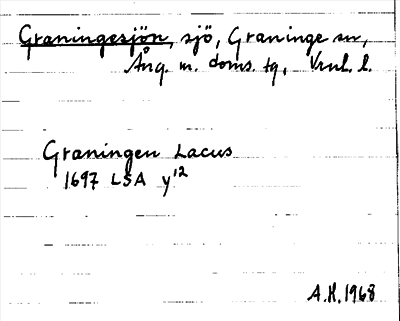 Graningesjön, sjö, Graninge sn,
Ång. m. doms. tg, Vnl. l.
Graningen Lacus
1697 LSA y12
A.H. 1968